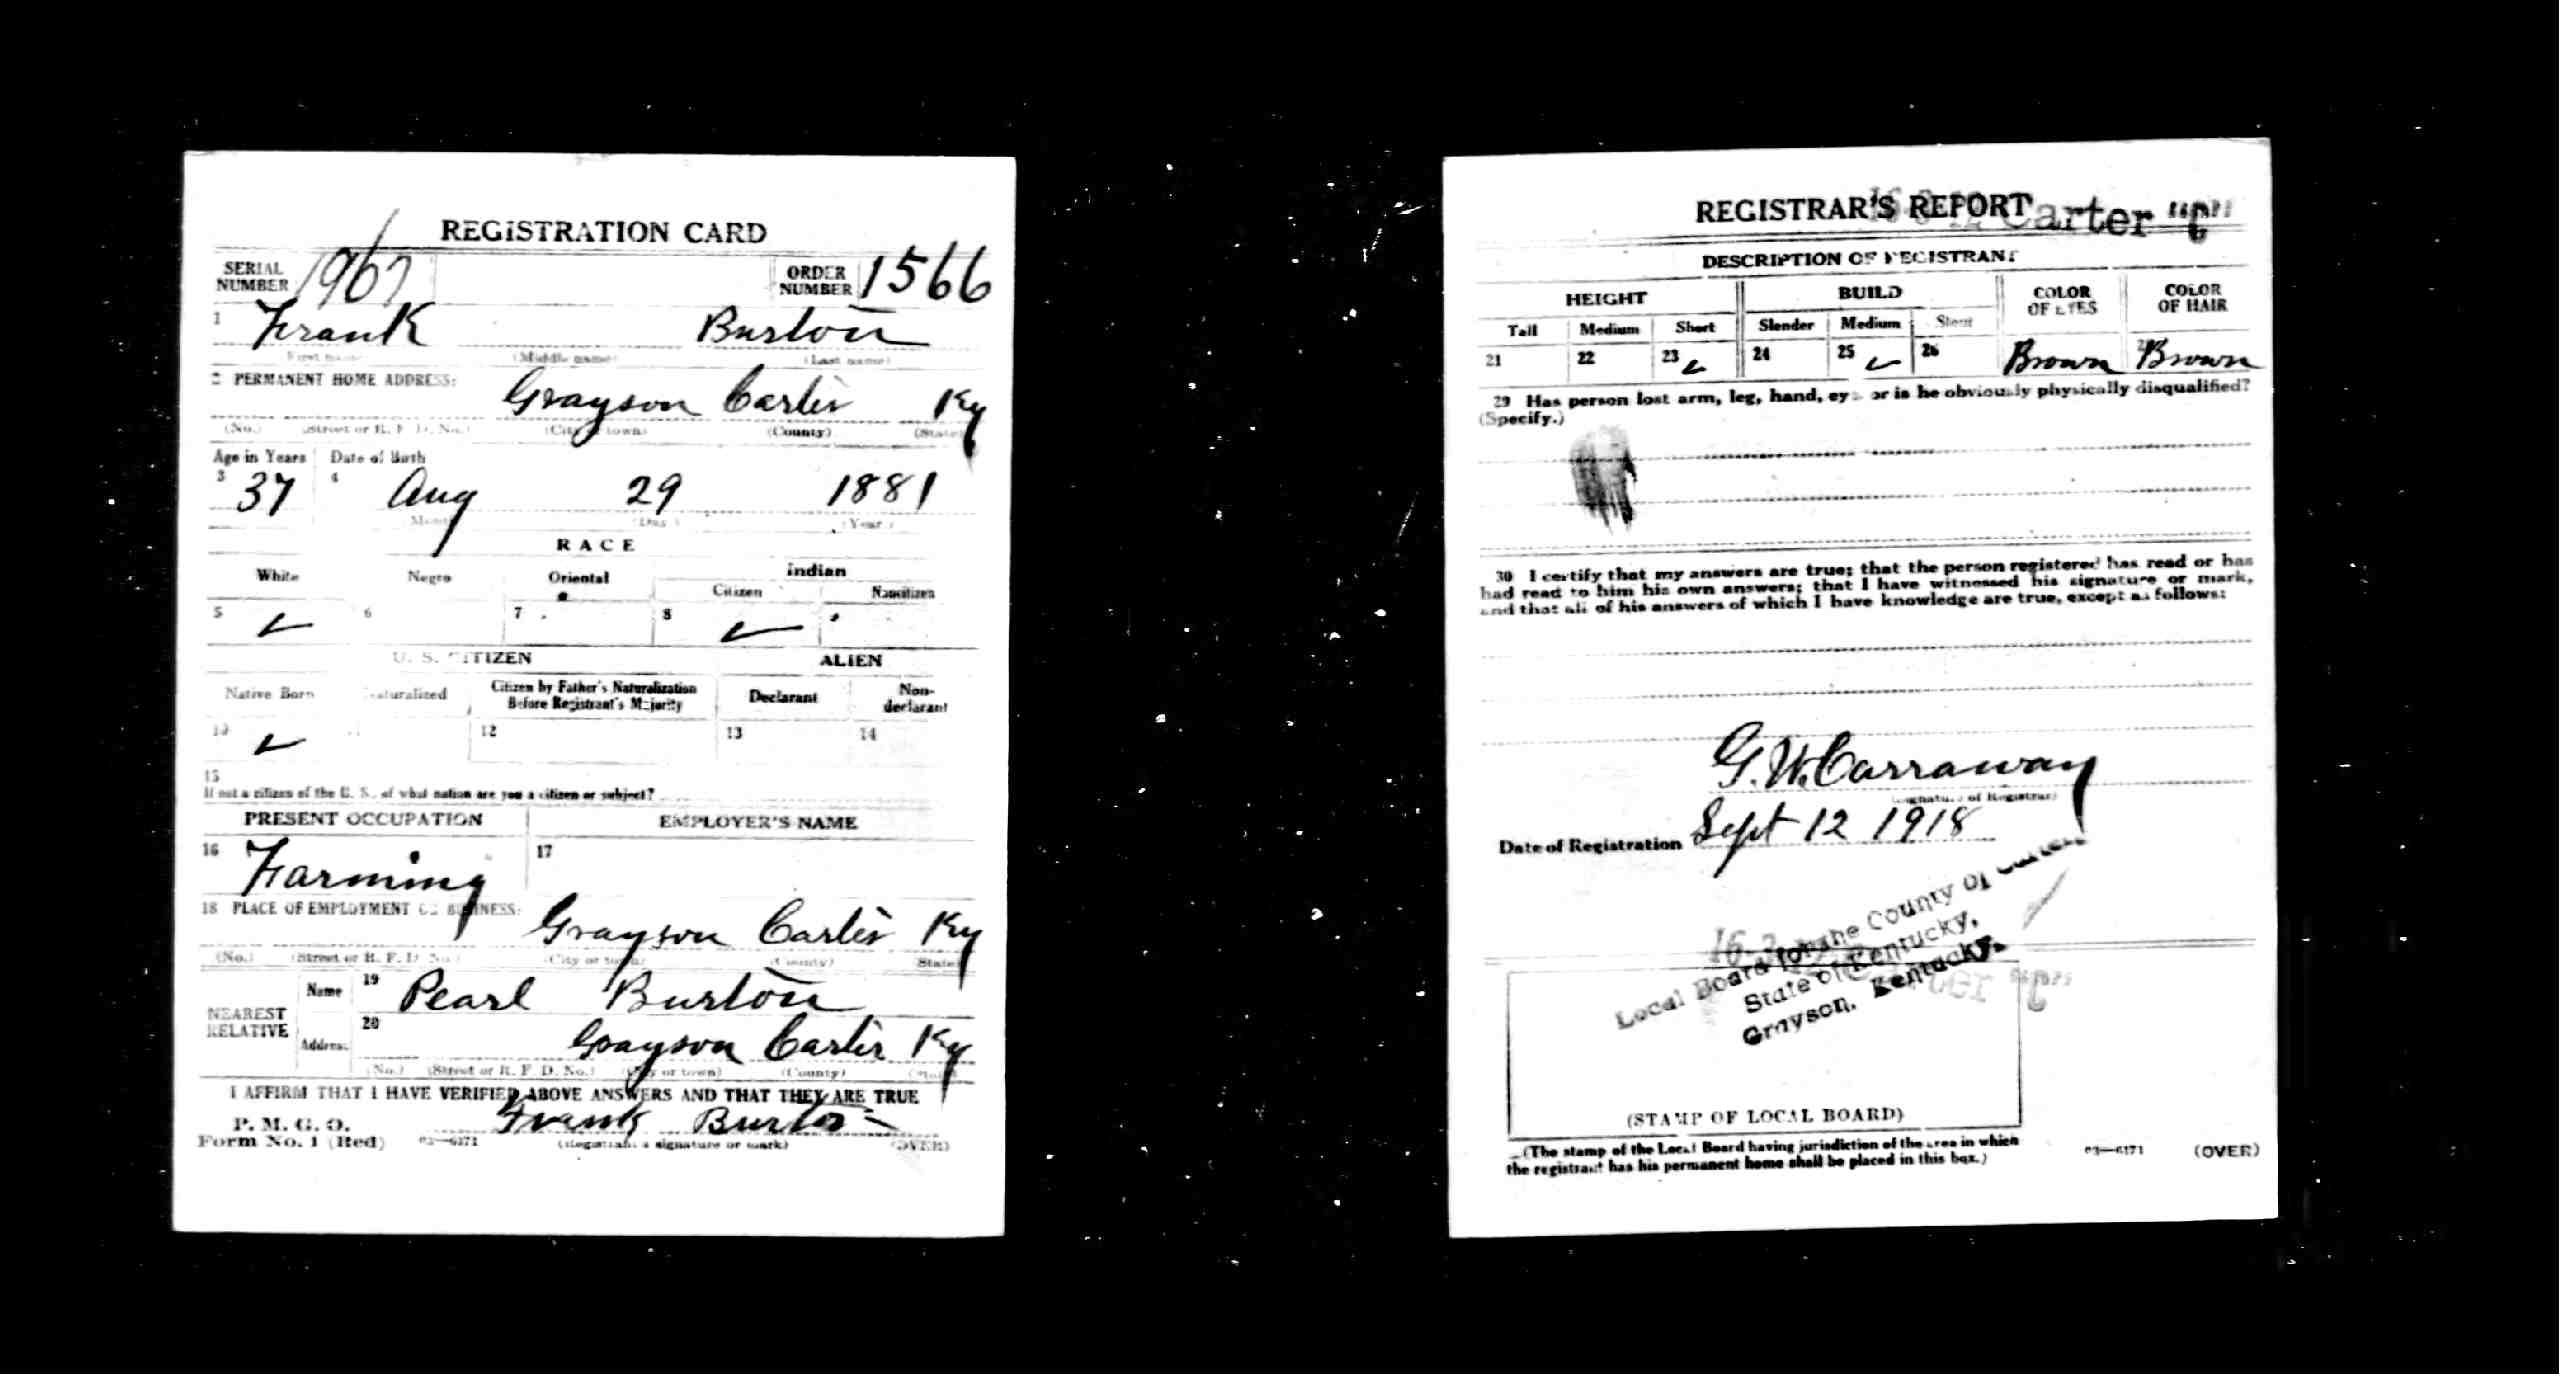 REGISTRATION CARD
SERIAL NUMBER 1967 ORDER NUMBER 1566
1 Frank Burton
(First name) (Middle name) (Last name)
2 PERMANENT HOME ADDRESS:
Grayson Carter Ky
(No.) (Street or R. F. D. No.) (City or town) (County) (State)
Age in Years Date of Birth
3 37 4 Aug 29 1881
(Month) (Day) (Year)
RACE
White Negro Oriental Indian
Citizen Noncitizen
5 ✓ 6 7 8 ✓
U. S. CITIZEN ALIEN
Native Born Naturalized Citizen by Father's Naturalization Before Registrant's Majority Declarant Non-declarant
10 ✓ 12 13 14
15
If not a citizen of the U. S., of what nation are you a citizen or subject?
PRESENT OCCUPATION EMPLOYER'S NAME
16 Farming 17
18 PLACE OF EMPLOYMENT OR BUSINESS:
Grayson Carter Ky
(No.) (Street or R. F. D. No.) (City or town) (County) (State)
NEAREST RELATIVE
Name 19 Pearl Burton
Address 20 Grayson Carter Ky
(No.) (Street or R. F. D. No.) (City or town) (County) (State)
I AFFIRM THAT I HAVE VERIFIED ABOVE ANSWERS AND THAT THEY ARE TRUE
P. M. G. O.
Form No. 1 (Red) 03—6171 Frank Burton
(Registrant's signature or mark) (OVER)
REGISTRAR'S REPORT
Carter "C"
DESCRIPTION OF REGISTRANT
HEIGHT BUILD COLOR OF EYES COLOR OF HAIR
Tall Medium Short Slender Medium Stout
21 22 23 ✓ 24 25 ✓ 26 Brown Brown
29 Has person lost arm, leg, hand, eye, or is he obviously physically disqualified?
(Specify.)
30 I certify that my answers are true; that the person registered has read or has
had read to him his own answers; that I have witnessed his signature or mark,
and that all of his answers of which I have knowledge are true, except as follows:
G. W. Carraway
(Signature of Registrar)
Date of Registration Sept 12 1918
Local Board for the County of Carter,
State of Kentucky,
Grayson, Kentucky.
(STAMP OF LOCAL BOARD)
(The stamp of the Local Board having jurisdiction of the area in which
the registrant has his permanent home shall be placed in this box.)
03—6171 (OVER)